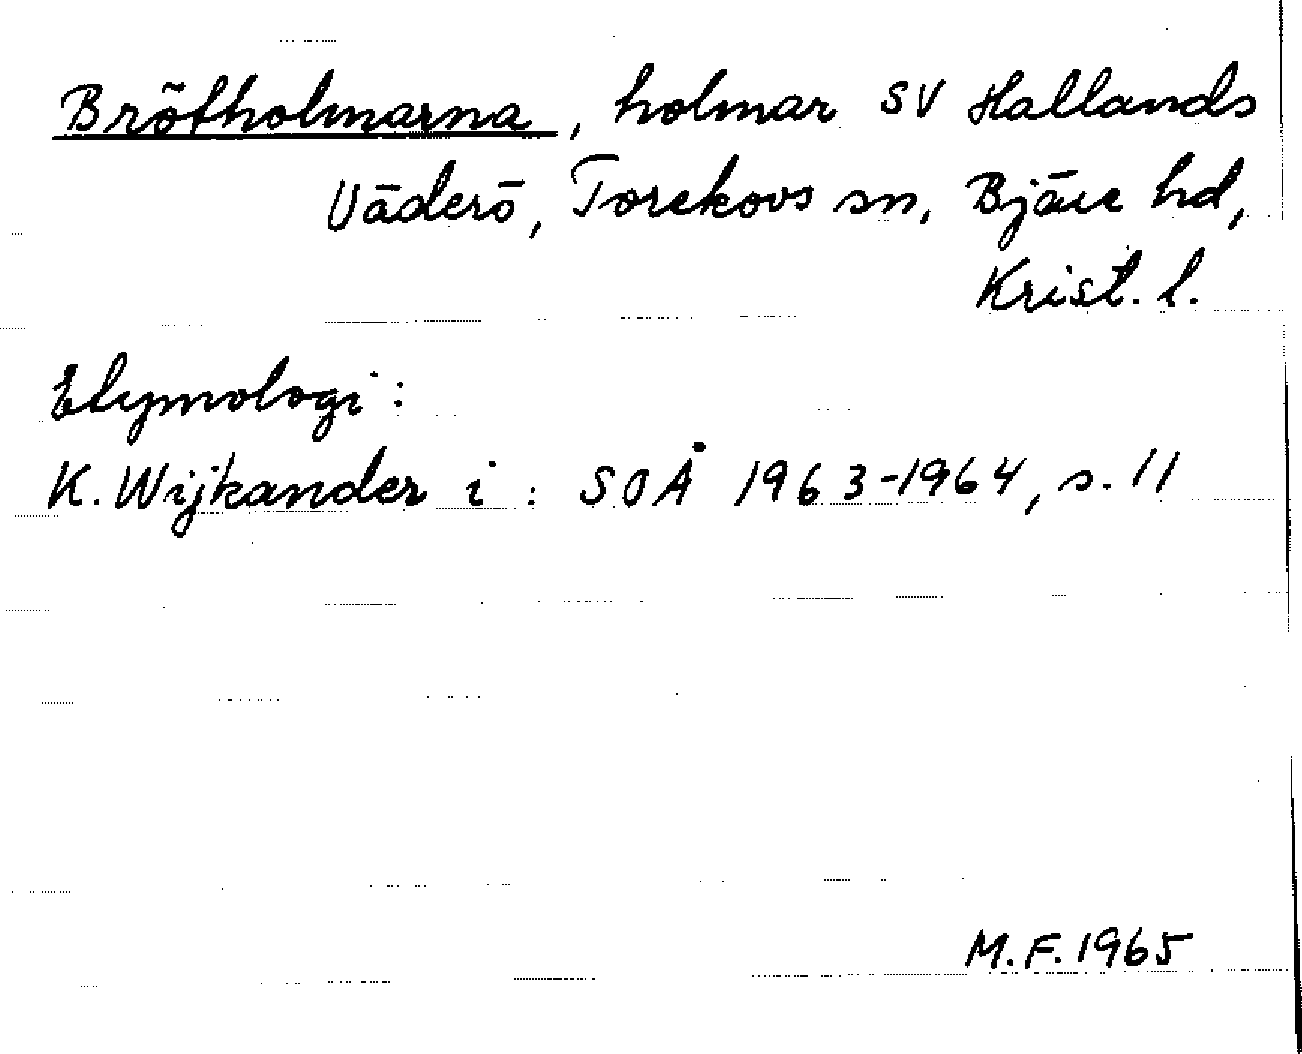 Bröfholmarna, holmar SV Hallands
Väderö, Torekovs sn, Bjäre hd,
Krist. l.
Etymologi:
K. Wijkander i: SOÅ 1963-1964, s. 11
M.F. 1965